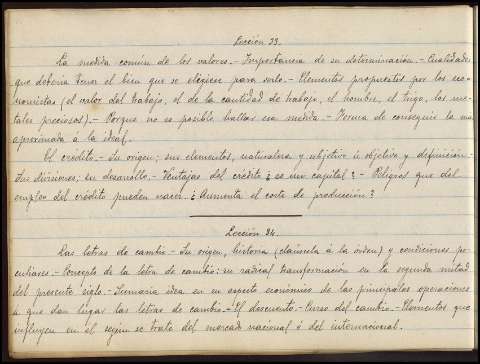 Lección 23.
La medida común de los valores.- Importancia de su determinación.- Cualidades
que debería tener el bien que se eligiese para serlo.- Elementos propuestos por los eco-
nomistas (el valor del trabajo, el de la cantidad de trabajo, el hombre, el trigo, los me-
tales preciosos).- Porque no es posible hallar esa medida.- Forma de conseguir la mas
aproximada á la ideal.
El crédito.- Su origen; sus elementos, naturaleza y subjetivo ú objetivo y definición.-
Sus divisiones; su desarrollo.- Ventajas del crédito ¿es un capital?- Peligros que del
empleo del crédito pueden nacer. ¿Aumenta el coste de producción?
Lección 24.
Las letras de cambio.- Su origen, historia (cláusula á la orden) y condiciones pe-
culiares.- Concepto de la letra de cambio; su radical transformación en la segunda mitad
del presente siglo.- Sumaria idea en su aspecto económico de las principales operaciones
a que dan lugar las letras de cambio.- El descuento.- Curso del cambio.- Elementos que
influyen en él según se trate del mercado nacional ó del internacional.